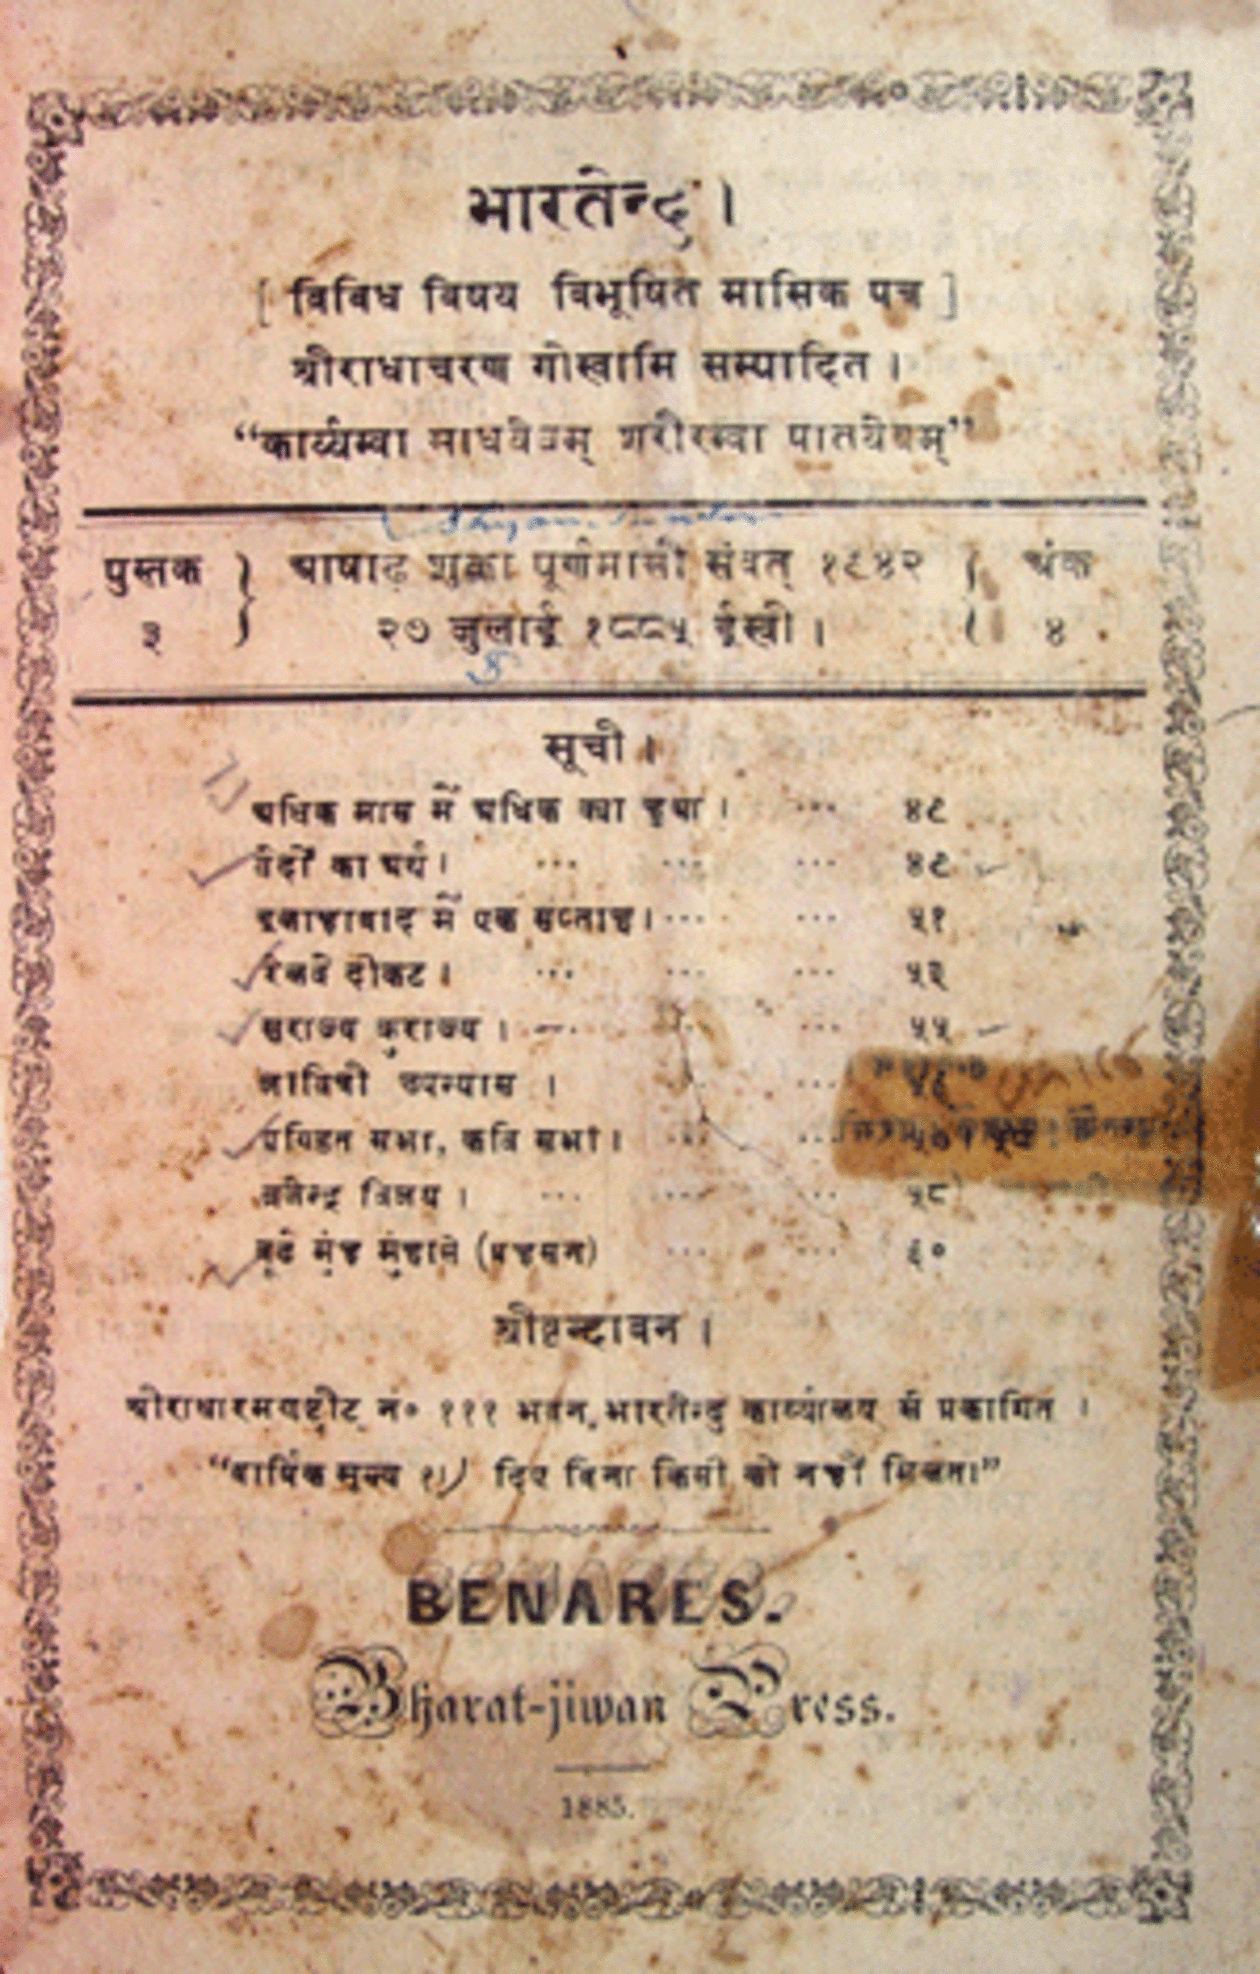 भारतेन्दु ।
[ विविध विषय विभूषित मासिक पत्र ]
श्रीराधाचरण गोस्वामि सम्पादित ।
“कार्य्यम्वा साधयेयम् शरीरम्वा पातयेयम्”
पुस्तक } आषाढ़ शुक्ला पूर्णमासी संवत् १९४२ { अंक
३ } २७ जुलाई १८८५ ईस्वी । { ४ .
सूची ।
अधिक मास में अधिक क्या हुआ । ... ४९
वेदों का अर्थ । ... ... ... ४९
इलाहाबाद में एक सप्ताह । ... ... ५१
रेलवे टीकट । ... ... ... ५३
सुराज्य कुराज्य । ... ... ५५
सावित्री उपन्यास । ... ५६
पण्डित सभा, कवि सभा । ... ...
व्रजेन्द्र विजय । ... ... ... ५८
बूढे मुंह मुंहासे (प्रहसन) ... ... ६०
श्रीवृन्दावन ।
श्रीराधारमणष्ट्रीट् नं० १११ भवन, भारतेन्दु कार्य्यालय से प्रकाशित ।
“वार्षिक मूल्य १।) दिए बिना किसी को नहीं मिलता।”
BENARES.
Bharat-jiwan Press.
1885.